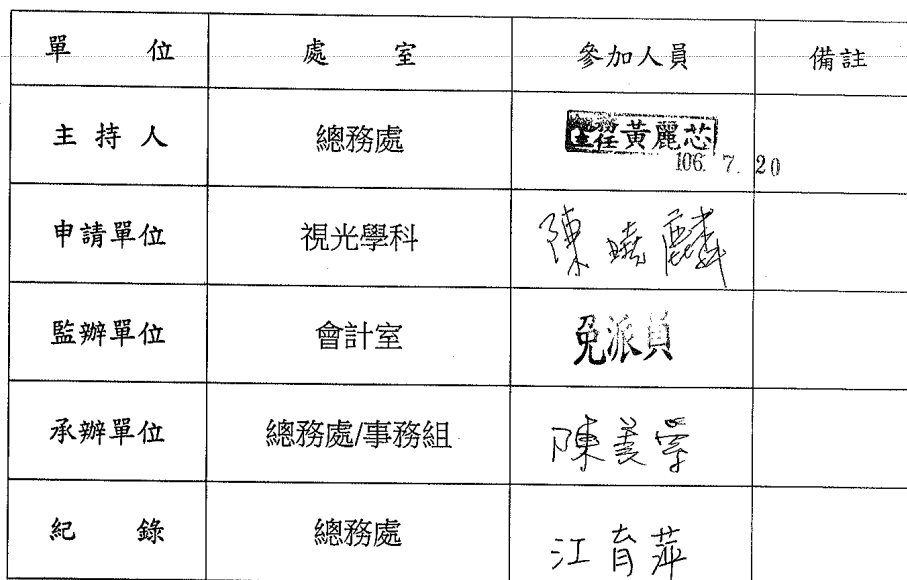 單 位 處 室 參加人員 備註
主持人 總務處 總務主任 黃麗芯
106. 7. 20
申請單位 視光學科 陳曉麟
監辦單位 會計室 免派員
承辦單位 總務處/事務組 陳美
紀 錄 總務處 江育萍